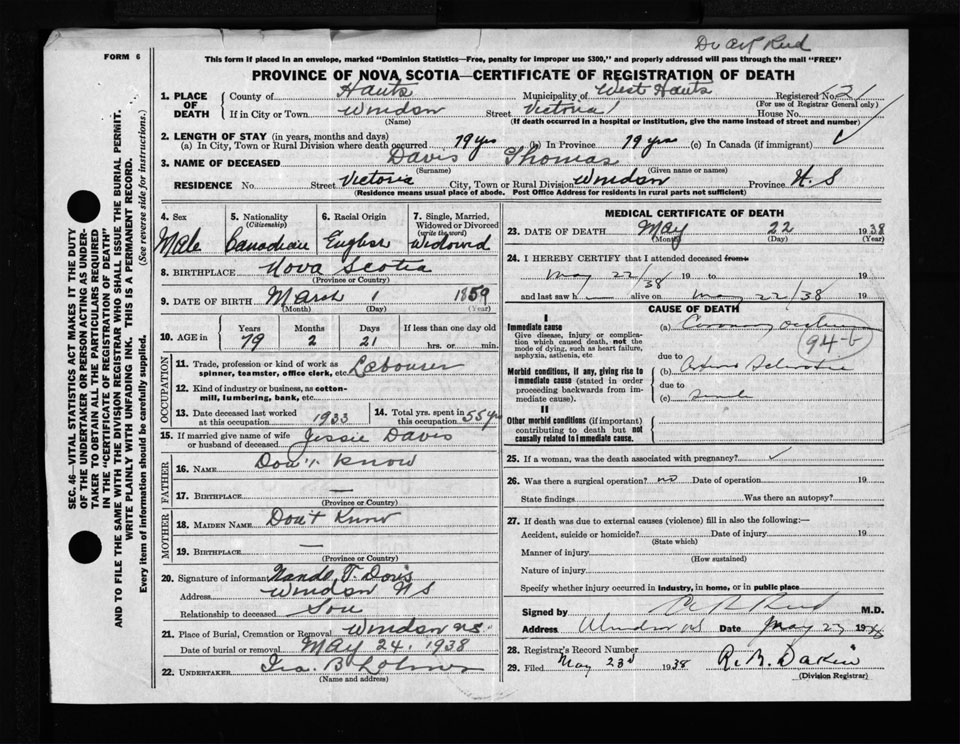 Dr A R Reid
FORM 6
This form if placed in an envelope, marked "Dominion Statistics—Free, penalty for improper use $300," and properly addressed will pass through the mail "FREE"
PROVINCE OF NOVA SCOTIA—CERTIFICATE OF REGISTRATION OF DEATH
1. PLACE OF DEATH
County of Hants Municipality of West Hants Registered No. 21
(For use of Registrar General only)
If in City or Town Windsor Street Victoria House No.
(Name) (If death occurred in a hospital or institution, give the name instead of street and number)
2. LENGTH OF STAY (in years, months and days)
(a) In City, Town or Rural Division where death occurred 79 yrs (b) In Province 79 yrs (c) In Canada (if immigrant)
3. NAME OF DECEASED Davis Thomas
(Surname) (Given name or names)
RESIDENCE No. Street Victoria City, Town or Rural Division Windsor Province N.S
(Residence means usual place of abode. Post Office Address for residents in rural parts not sufficient)
4. Sex
Male
5. Nationality
(Citizenship)
Canadian
6. Racial Origin
English
7. Single, Married, Widowed or Divorced
(write the word)
Widowed
8. BIRTHPLACE Nova Scotia
(Province or Country)
9. DATE OF BIRTH March 1 1859
(Month) (Day) (Year)
10. AGE in Years Months Days If less than one day old
79 2 21 hrs. or min.
OCCUPATION
11. Trade, profession or kind of work as
spinner, teamster, office clerk, etc. Labourer
12. Kind of industry or business, as cotton-
mill, lumbering, bank, etc.
13. Date deceased last worked
at this occupation 1933
14. Total yrs. spent in
this occupation 55 yrs
15. If married give name of wife
or husband of deceased Jessie Davis
FATHER
16. NAME Don't Know
17. BIRTHPLACE —
(Province or Country)
MOTHER
18. MAIDEN NAME Don't Know
19. BIRTHPLACE —
(Province or Country)
20. Signature of informant T. Davis
Address Windsor N S
Relationship to deceased Son
21. Place of Burial, Cremation or Removal Windsor N.S.
Date of burial or removal May 24, 1938
22. UNDERTAKER Ira. B
(Name and address)
MEDICAL CERTIFICATE OF DEATH
23. DATE OF DEATH May 22 1938
(Month) (Day) (Year)
24. I HEREBY CERTIFY that I attended deceased from
May 22/38 19 to 19
and last saw h alive on May 22/38 19
CAUSE OF DEATH
I
Immediate cause
Give disease, injury or complica-
tion which caused death, not the
mode of dying, such as heart failure,
asphyxia, asthenia, etc
(a) Coronary
94-b
due to
Morbid conditions, if any, giving rise to
immediate cause (stated in order
proceeding backwards from im-
mediate cause).
(b)
due to
(c) Senile
II
Other morbid conditions (if important)
contributing to death but not
causally related to immediate cause.
25. If a woman, was the death associated with pregnancy?
26. Was there a surgical operation? no Date of operation 19
State findings Was there an autopsy?
27. If death was due to external causes (violence) fill in also the following:—
Accident, suicide or homicide? Date of injury 19
(State which)
Manner of injury
(How sustained)
Nature of injury
Specify whether injury occurred in industry, in home, or in public place
Signed by A R Reid M.D.
Address Windsor NS Date May 23 1938
28. Registrar's Record Number
29. Filed May 23d 1938 R. B. Dakin
(Division Registrar)
SEC. 46—VITAL STATISTICS ACT MAKES IT THE DUTY
OF THE UNDERTAKER OR PERSON ACTING AS UNDER-
TAKER TO OBTAIN ALL THE PARTICULARS REQUIRED
IN THE "CERTIFICATE OF REGISTRATION OF DEATH"
AND TO FILE THE SAME WITH THE DIVISION REGISTRAR WHO SHALL ISSUE THE BURIAL PERMIT.
WRITE PLAINLY WITH UNFADING INK. THIS IS A PERMANENT RECORD.
Every item of information should be carefully supplied. (See reverse side for instructions.)